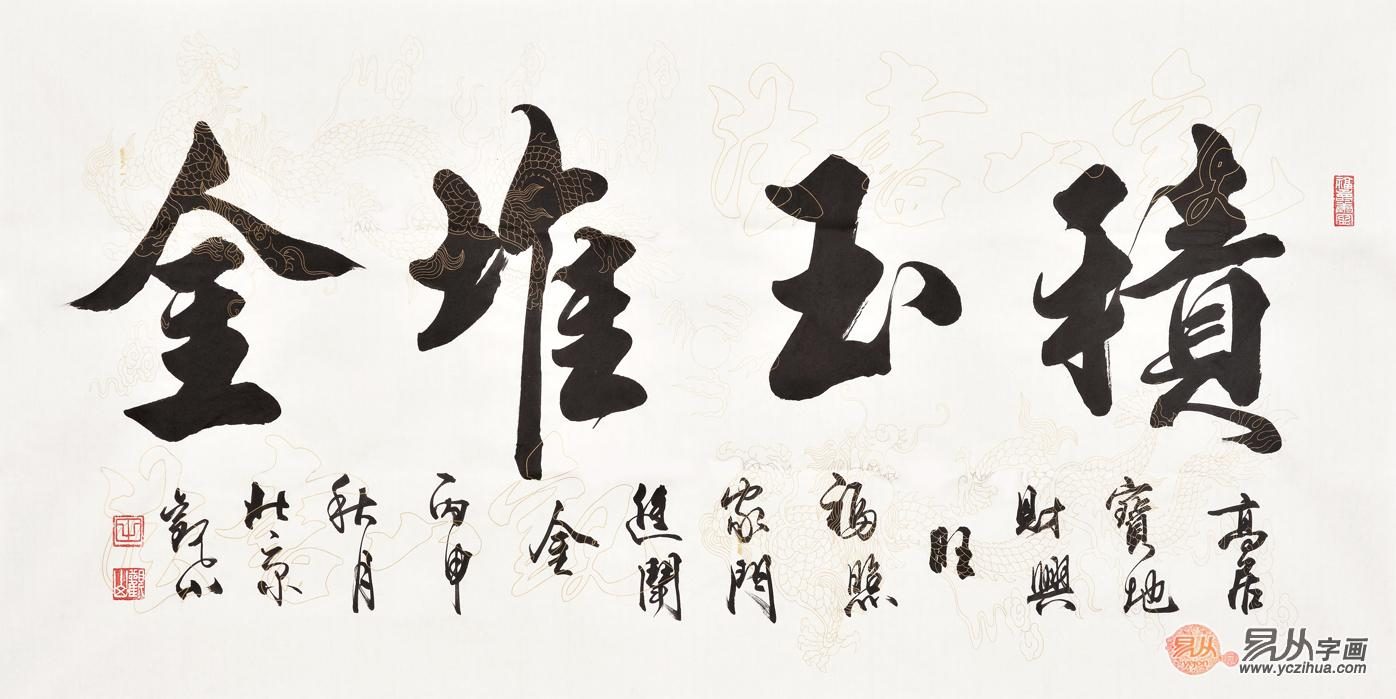 積玉堆金
高居
寶地
財興
旺
福照
家門
進闘
金
丙申
秋月
北京
觀山
易从
易从字画
www.yczihua.com